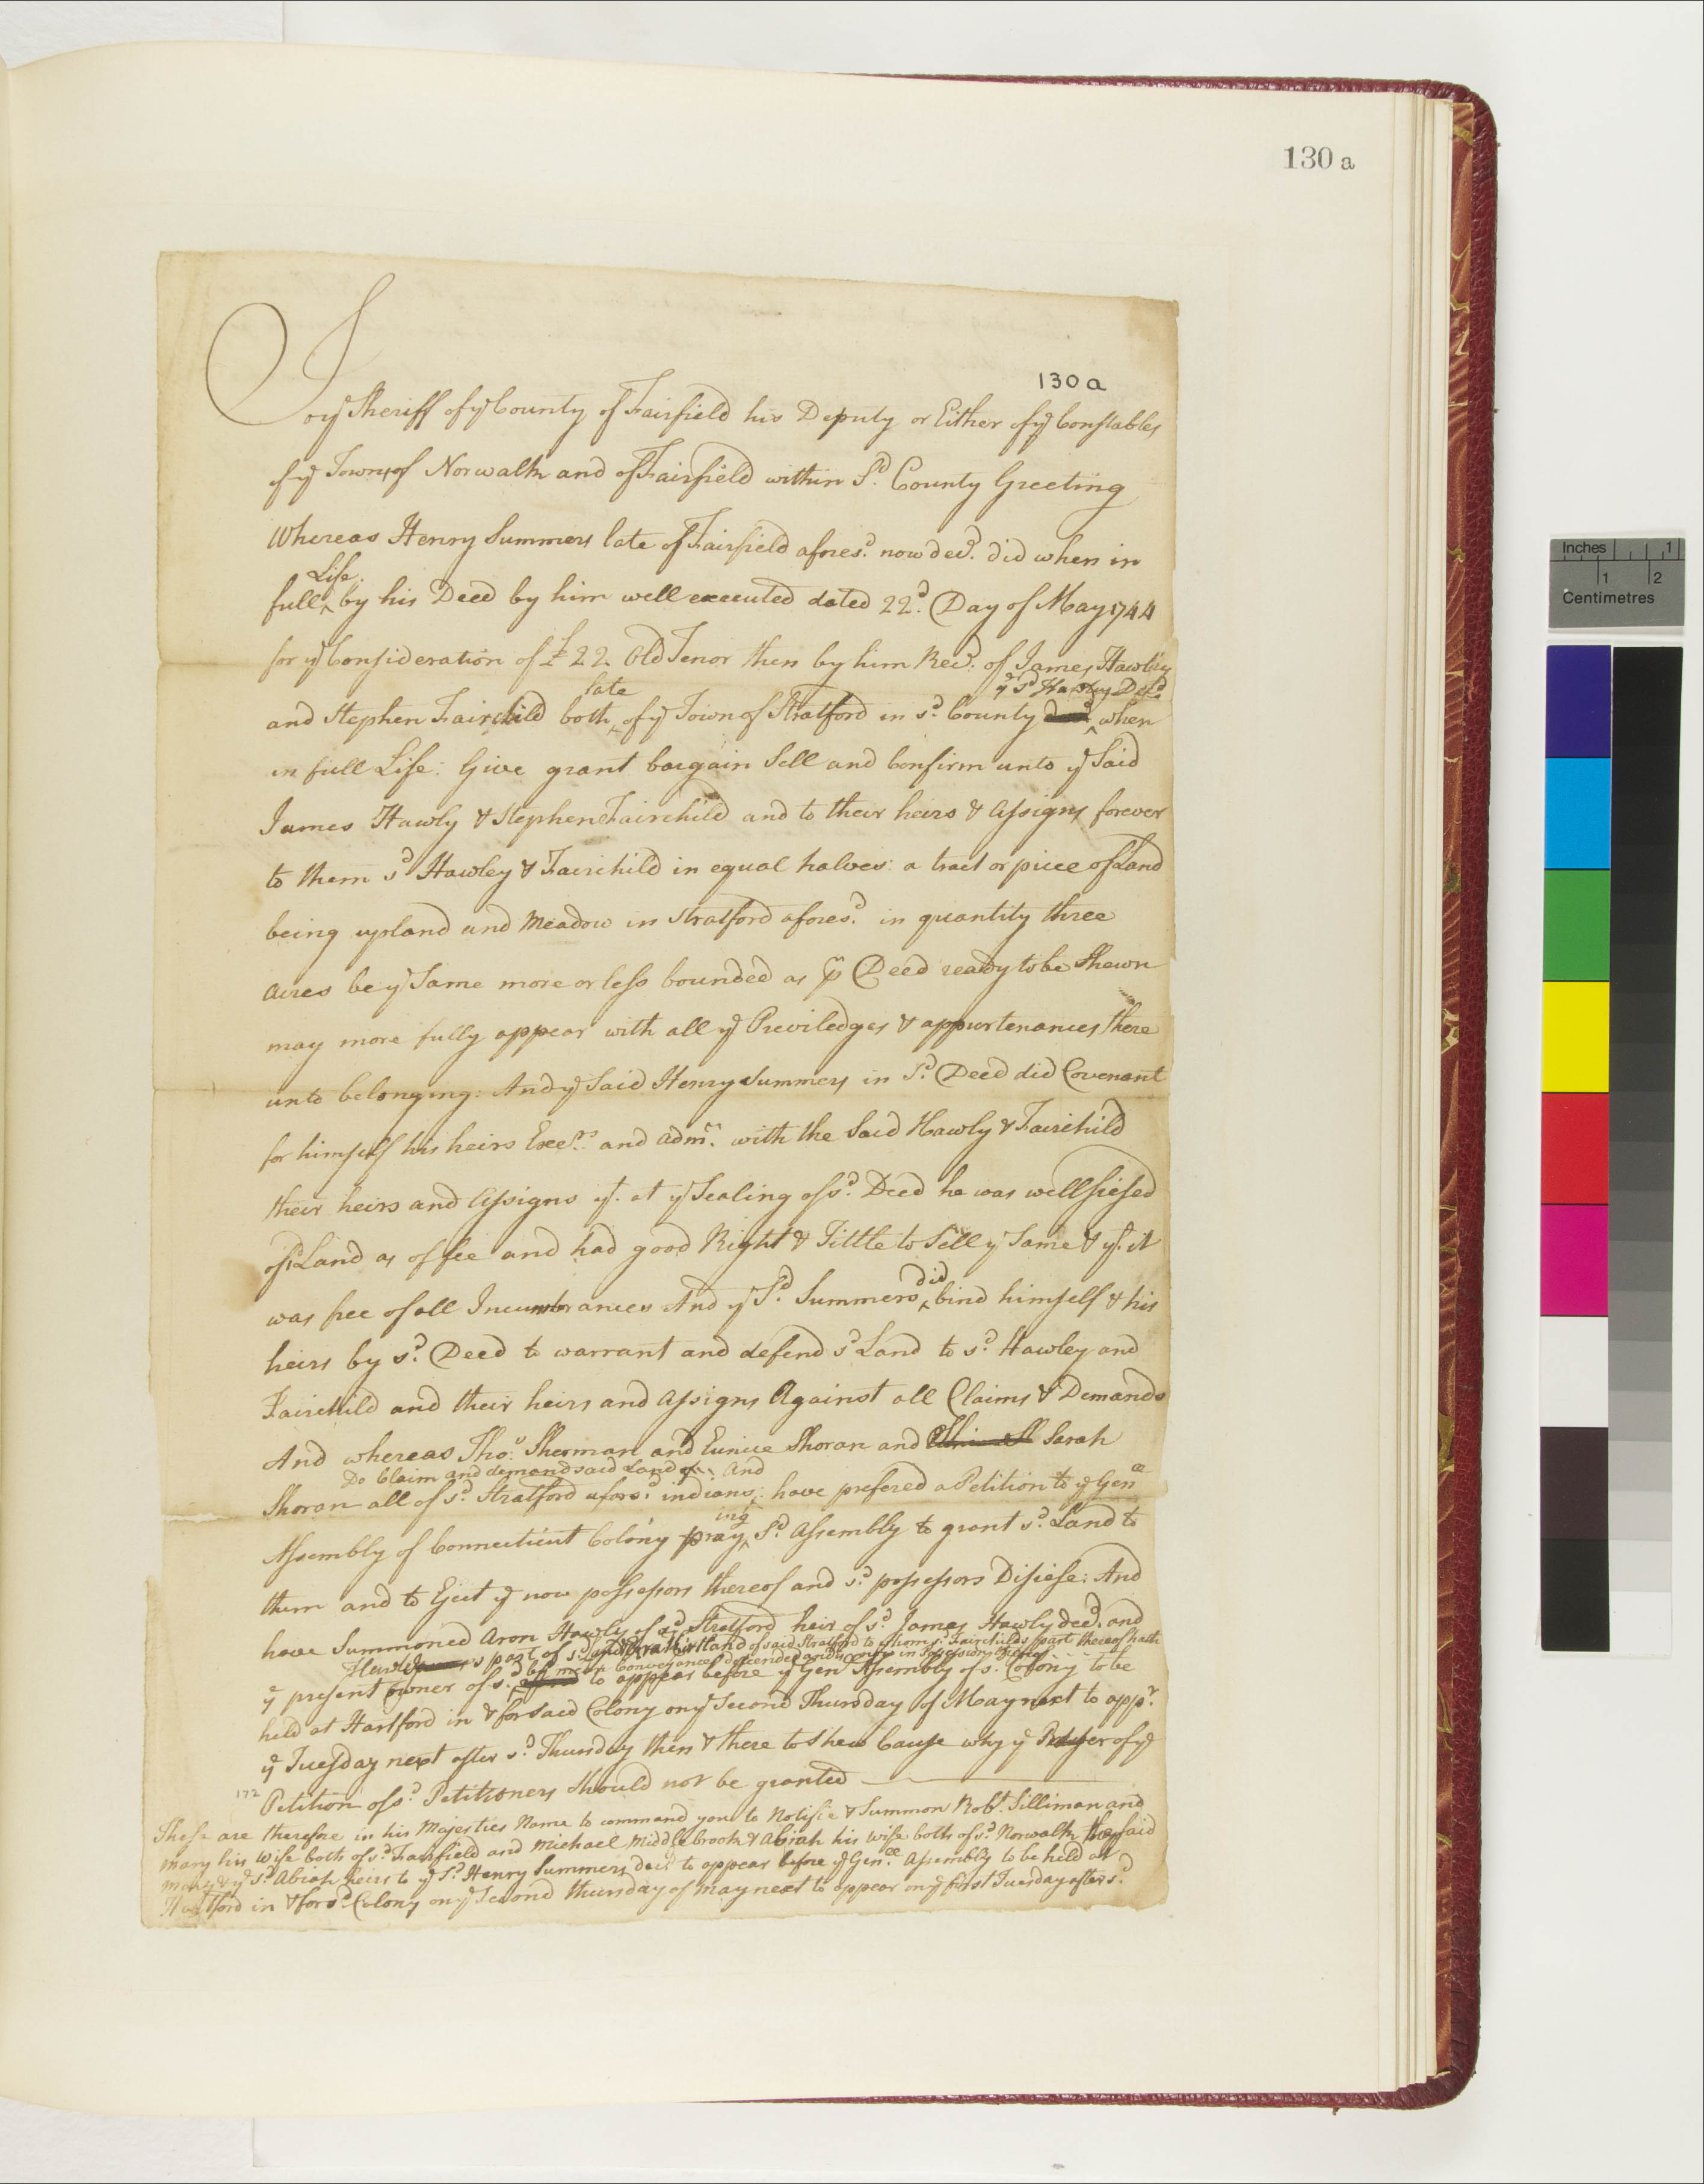 130 a
130 a
To yͤ Sheriff of yͤ County of Fairfield his Deputy or Either of yͤ Constables
of yͤ Towns of Norwalk and of Fairfield within Sᵈ. County Greeting
Whereas Henry Summers late of Fairfield aforesᵈ. now decᵈ. did when in
Life.
full ‸ by his Deed by him well executed dated 22ᵈ. Day of May 1744
for yͤ Consideration of £22 Old Tenor then by him Recᵈ. of James Hawley
late yͤ sᵈ Hawley Decᵈ
and Stephen Fairchild both ‸ of yͤ Town of Stratford in sᵈ. County ‸ when
in full Life: Give grant bargain Sell and Confirm unto yͤ Said
James Hawly & Stephen Fairchild and to their heirs & assigns forever
to them sᵈ Hawley & Fairchild in equal halves: a tract or piece of Land
being upland and meadow in Stratford aforesᵈ. in quantity three
acres be yͤ Same more or less bounded as ꝑ Deed ready to be Shewn
may more fully appear with all yͤ Priviledges & appurtenances there
unto belonging: And yͤ Said Henry Summers in Sᵈ. Deed did Covenant
for himself his heirs Execʳˢ. and admʳˢ. with the Said Hawly & Fairchild
their heirs and assigns yᵗ. at yͤ Sealing of sᵈ. Deed he was well siesed
of sᵈ Land as of fee and had good Right & Tittle to Sell yͤ Same & yᵗ. it
did
was free of all Incumbrances And yͤ Sᵈ. Summers ‸ bind himself & his
heirs by sᵈ. Deed to warrant and defend sᵈ Land to sᵈ. Hawley and
Fairchild and their heirs and assigns Against all Claims & Demands
And whereas Thoˢ. Sherman and Eunice Shoran and Sarah
Do Claim and demand said Land And
Shoran all of sᵈ. Stratford aforsᵈ. indians ‸ have prefered a Petition to yͤ Genˡˡ
ing
Assembly of Connecticut Colony pray ‸ Sᵈ. Assembly to grant sᵈ. Land to
them and to Eject yͤ now possessors thereof and sᵈ. possessors Disiese: And
have Summoned Aron Hawley of sᵈ Stratford heir of sᵈ. James Hawly decᵈ. and
part of sᵈ Land of said Stratford to whom sᵈ. Fairchilds part thereof hath
by mean Conveyances descended and is now in Possession thereof
yͤ present owner of sᵈ. to appear before yͤ Genˡˡ Assembly of sᵈ. Colony to be
held at Hartford in & for said Colony on yͤ Second Thursday of May next to appʳ.
yͤ Tuesday next after sᵈ. Thursday then & there to shew Cause why yͤ Prayer of yͤ
172
Petition of sᵈ. Petitioners Should not be granted
These are therefore in his Majesties Name to command you to Notifie & Summon Robᵗ. Silliman and
Mary his wife both of sᵈ. Fairfield and Michael Middlebrook & Abiah his wife both of sᵈ. Norwalk the said
Mary & yͤ Sᵈ. Abiah heirs to yͤ Sᵈ. Henry Summers decᵈ to appear before yͤ Genˡˡ. Assembly to be held at
Hartford in & for sᵈ Colony on yͤ Second thursday of may next to appear on yͤ first Tuesday after sᵈ.
Inches 1
1 2
Centimetres